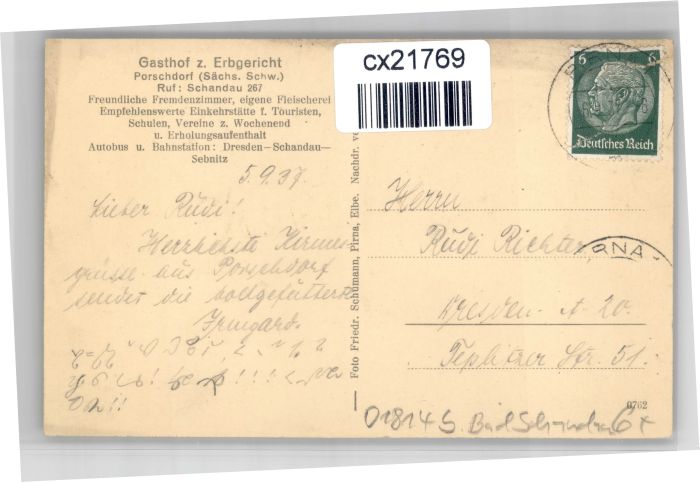 Gasthof z. Erbgericht
Porschdorf (Sächs. Schw.)
Ruf: Schandau 267
Freundliche Fremdenzimmer, eigene Fleischerei
Empfehlenswerte Einkehrstätte f. Touristen,
Schulen, Vereine z. Wochenend
u. Erholungsaufenthalt
Autobus u. Bahnstation: Dresden—Schandau—
Sebnitz
5.9.37.
Lieber Rudi!
Herrlichste Kirmes
grüße aus Porschdorf
sendet die vollgefütterte
Irmgard.
Foto Friedr. Schumann, Pirna, Elbe. Nachdr. ve
cx21769
6 6
Deutsches Reich
Herrn
Rudi Richter
RNA
Dresden-A-20.
Teplitzer Str. 51.
0762
01814 S. Bad Schandau 6x